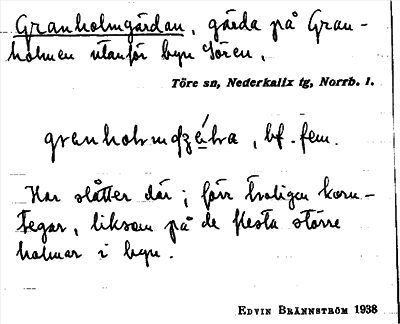 Granholmgårdan, gärda på Gran-
holmen utanför byn Sören.
Töre sn, Nederkalix tg, Norrb. l.
bf. fem.
Har slåtter där; förr troligen korn-
tegar, liksom på de flesta större
holmar i byn.
EDVIN BRÄNNSTRÖM 1938